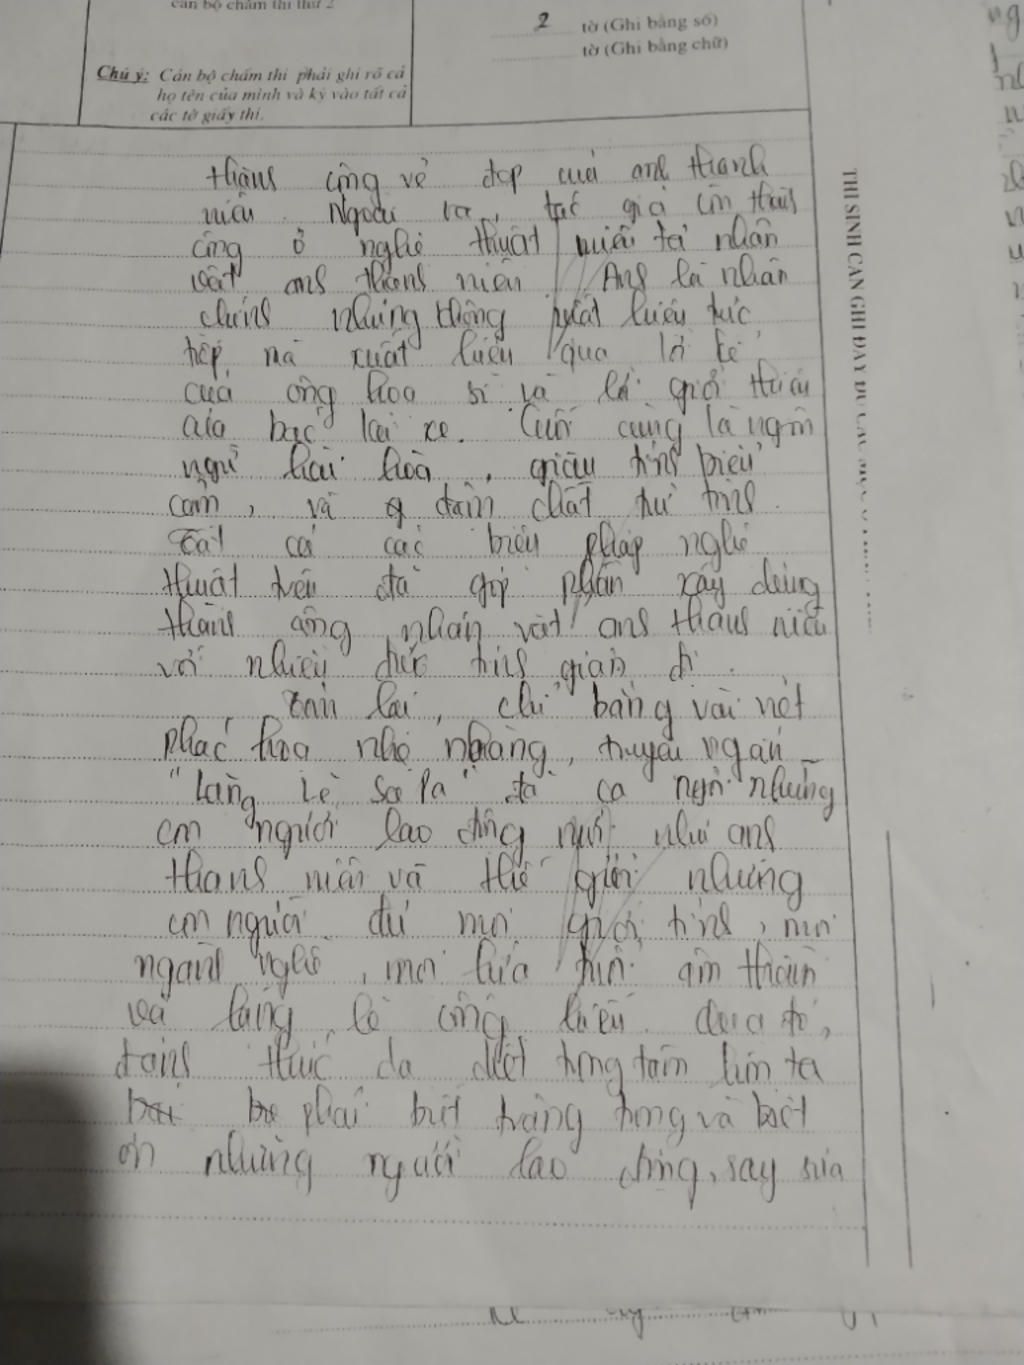 cán bộ chấm thi thứ 2
2 tờ (Ghi bằng số)
tờ (Ghi bằng chữ)
Chú ý: Cán bộ chấm thi phải ghi rõ cả
họ tên của mình và ký vào tất cả
các tờ giấy thi.
THÍ SINH CẦN GHI ĐẦY ĐỦ CÁC MỤC Ở
thành công vẻ đẹp của anh thanh
niên. Ngoài ra, tác giả còn thành
công ở nghệ thuật miêu tả nhân
vật anh thanh niên. Anh là nhân
chính nhưng không xuất hiện trực
tiếp mà xuất hiện qua lời kể
của ông họa sĩ và lời giới thiệu
của bác lái xe. Cuối cùng là ngôn
ngữ hài hòa, giàu tính biểu
cảm, và đậm chất trữ tình.
Tất cả các biện pháp nghệ
thuật trên đã góp phần xây dựng
thành công nhân vật anh thanh niên
với nhiều đức tính giản dị.
Tóm lại, chỉ bằng vài nét
phác họa nhẹ nhàng, truyện ngắn
"Lặng lẽ Sa Pa" đã ca ngợi những
con người lao động mới như anh
thanh niên và thế giới những
con người đủ mọi giới tính, mọi
ngành nghề, mọi lứa tuổi âm thầm
và lặng lẽ cống hiến. Qua đó,
đánh thức da diết trong tâm hồn ta
phải biết trân trọng và biết
ơn những người lao động, say sưa